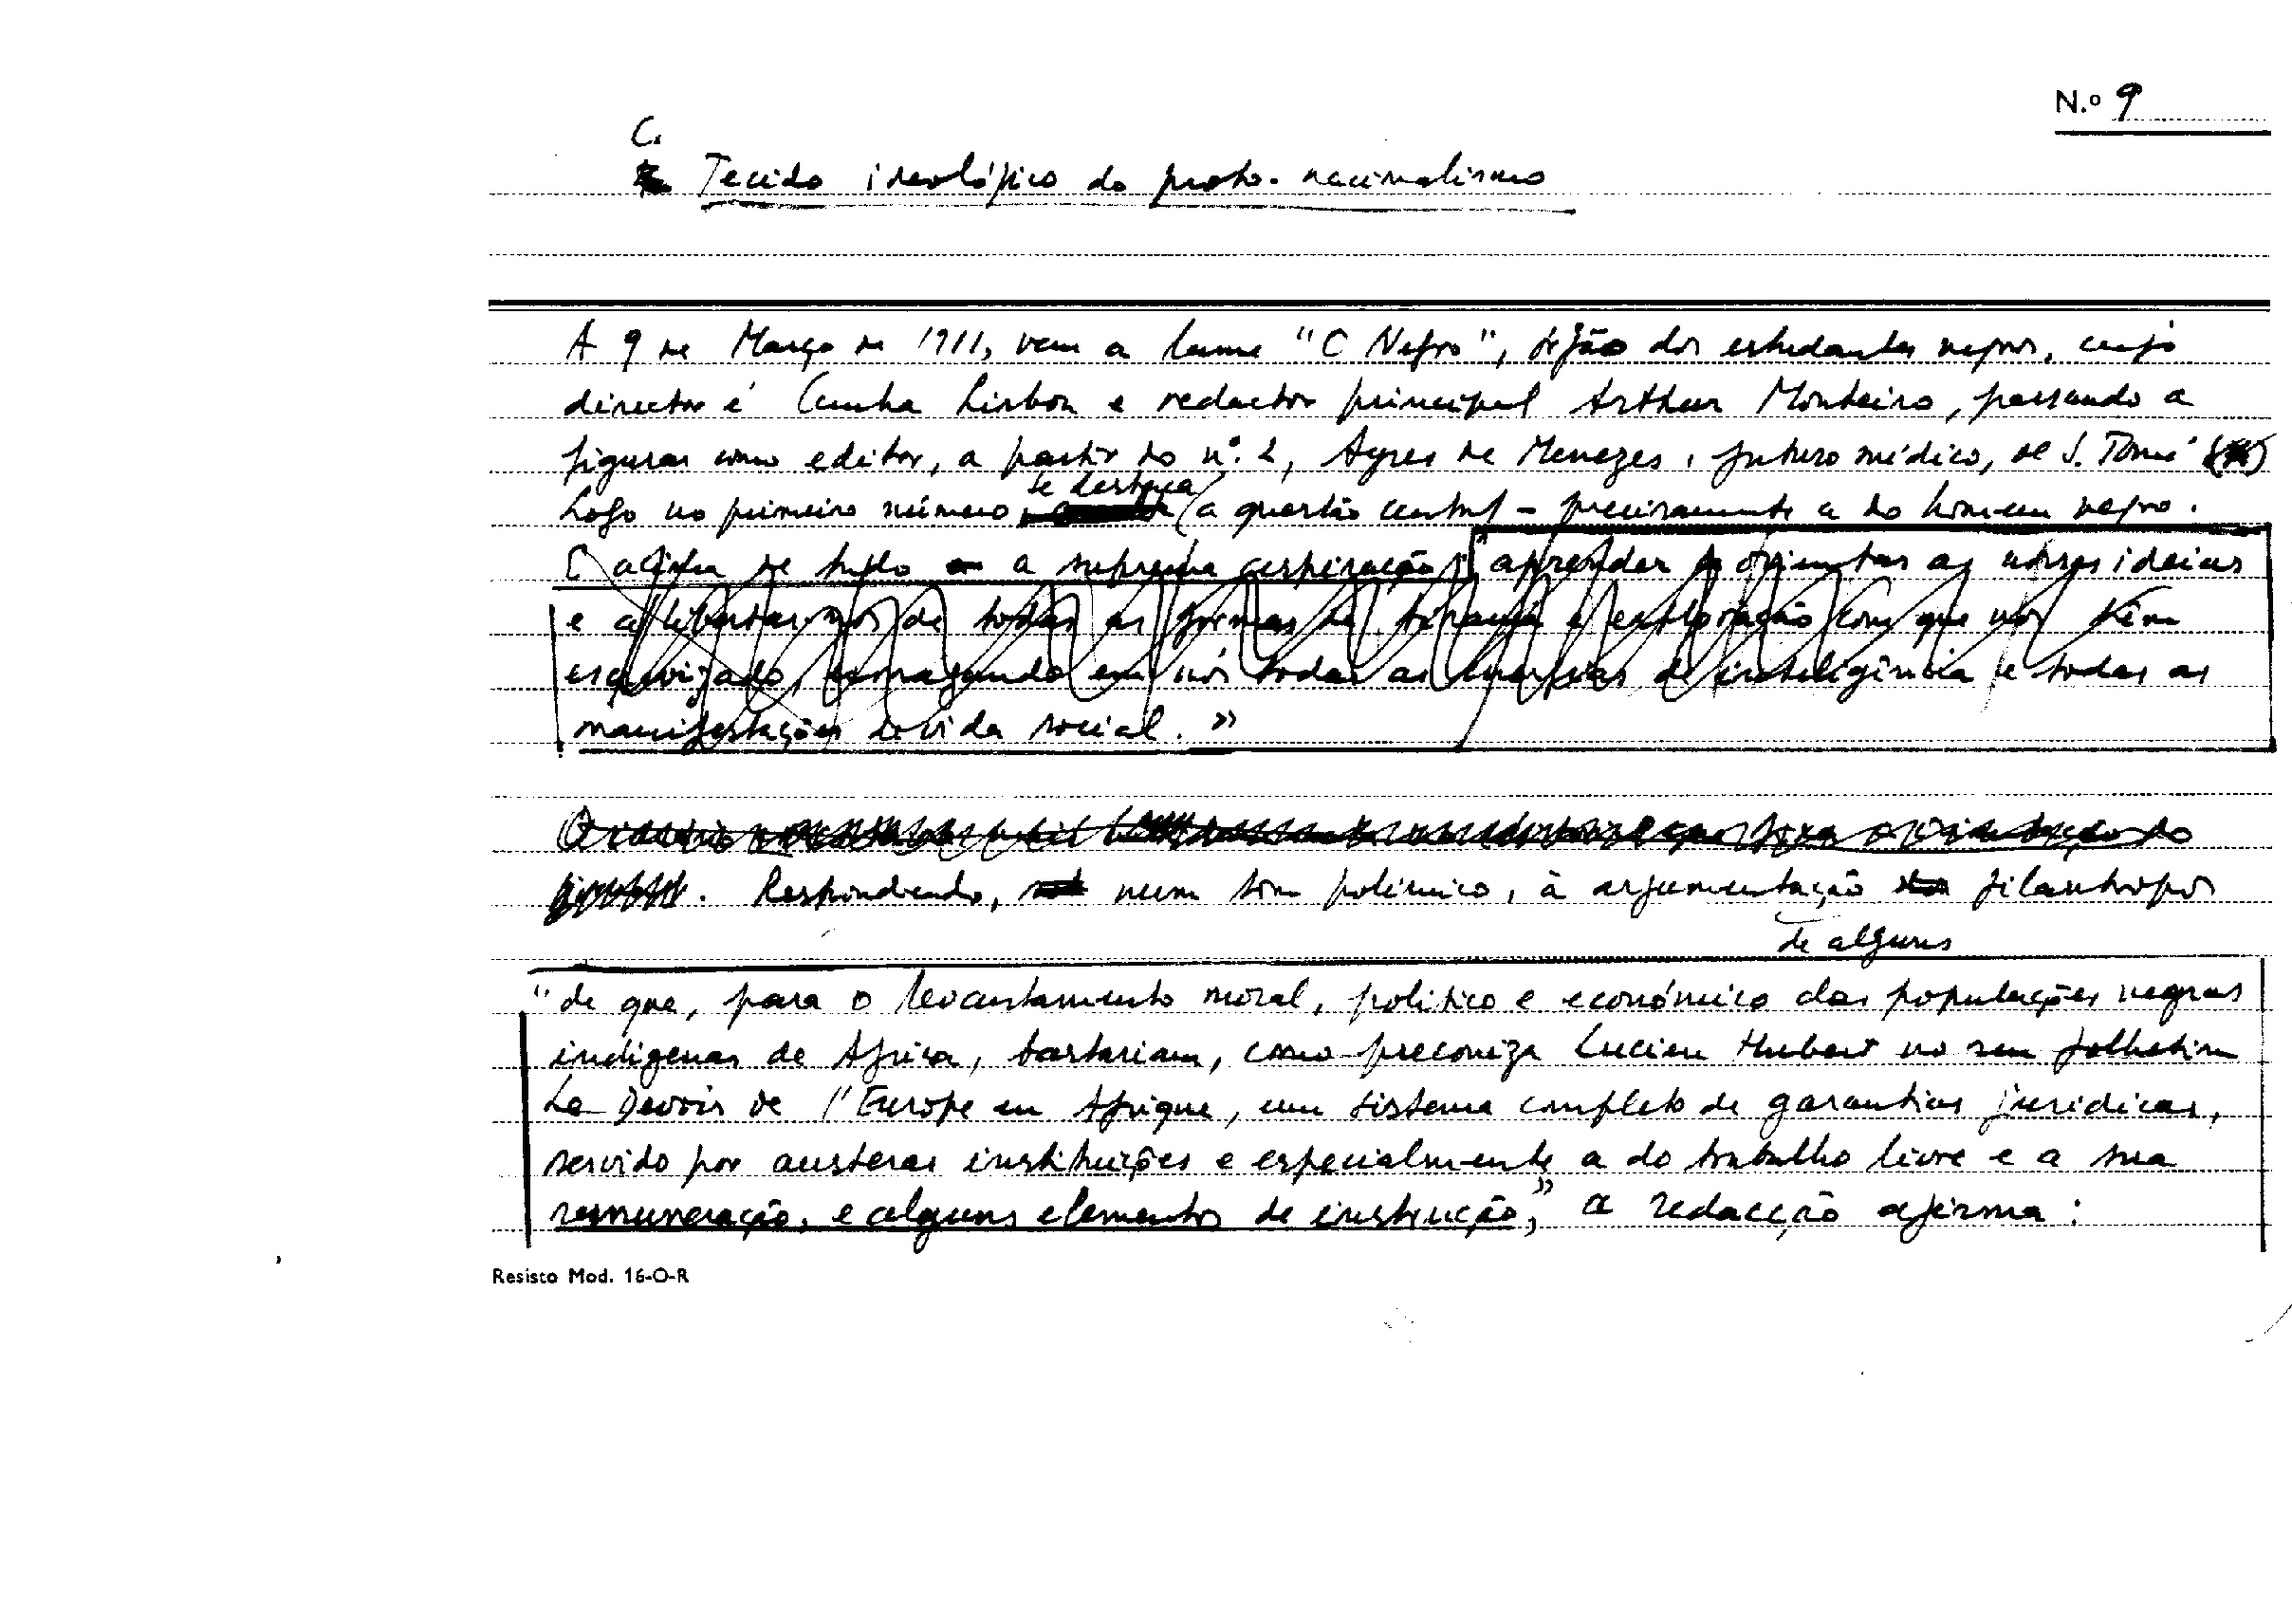 N.º 9
C.
Tecido ideológico do proto-nacionalismo
A 9 de Março de 1911, vem a lume "O Negro", órgão dos estudantes negros, cujo
director é Cunha Lisboa e redactor principal Arthur Monteiro, passando a
figurar como editor, a partir do n.º 2, Ayres de Menezes, futuro médico, de S. Tomé
se destaca
Logo no primeiro número a questão central - precisamente a do homem negro.
E acima de tudo a suprema aspiração: "aprender a orientar as nossas ideias
e a libertar-nos de todas as formas de tirania e exploração com que nos têm
escravizado, esmagando em nós todas as energias de inteligência e todas as
manifestações de vida social."
orientação do
. Respondendo, num tom polémico, à argumentação filantropos
de alguns
"de que, para o levantamento moral, politico e económico das populações negras
indigenas de Africa, bastariam, como preconiza Lucien Hubert no seu folhetim
Le Devoir de l'Europe en Afrique, um sistema completo de garantias juridicas,
servido por austeras instituições e especialmente a do trabalho livre e a sua
remuneração, e alguns elementos de instrução," a redacção afirma:
Resisto Mod. 16-O-R